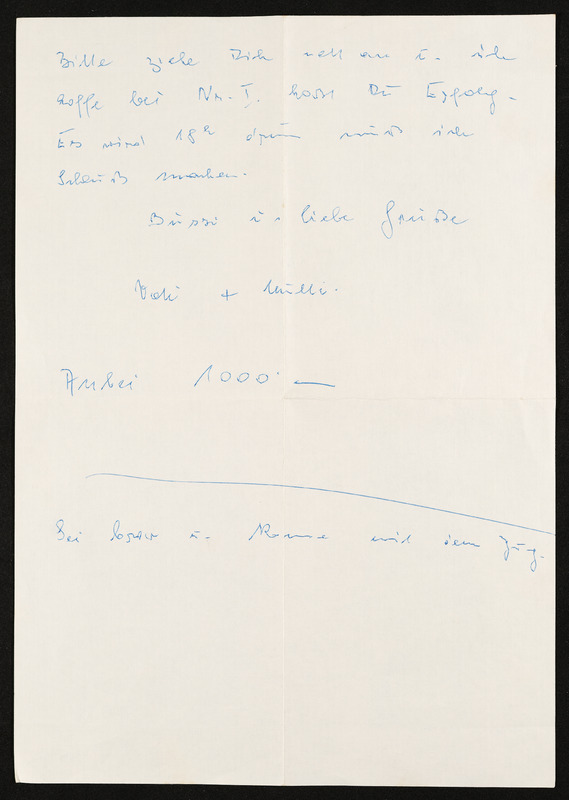 Bitte ziehe Dich nett an u. ich
hoffe bei Nr. I. hast Du Erfolg.
Es wird 18h drum muß ich
Schluß machen.
Bussi u. liebe Grüße
Vati + Mutti.
Anbei 1000.—
Sei brav u. komme mit dem Zug.